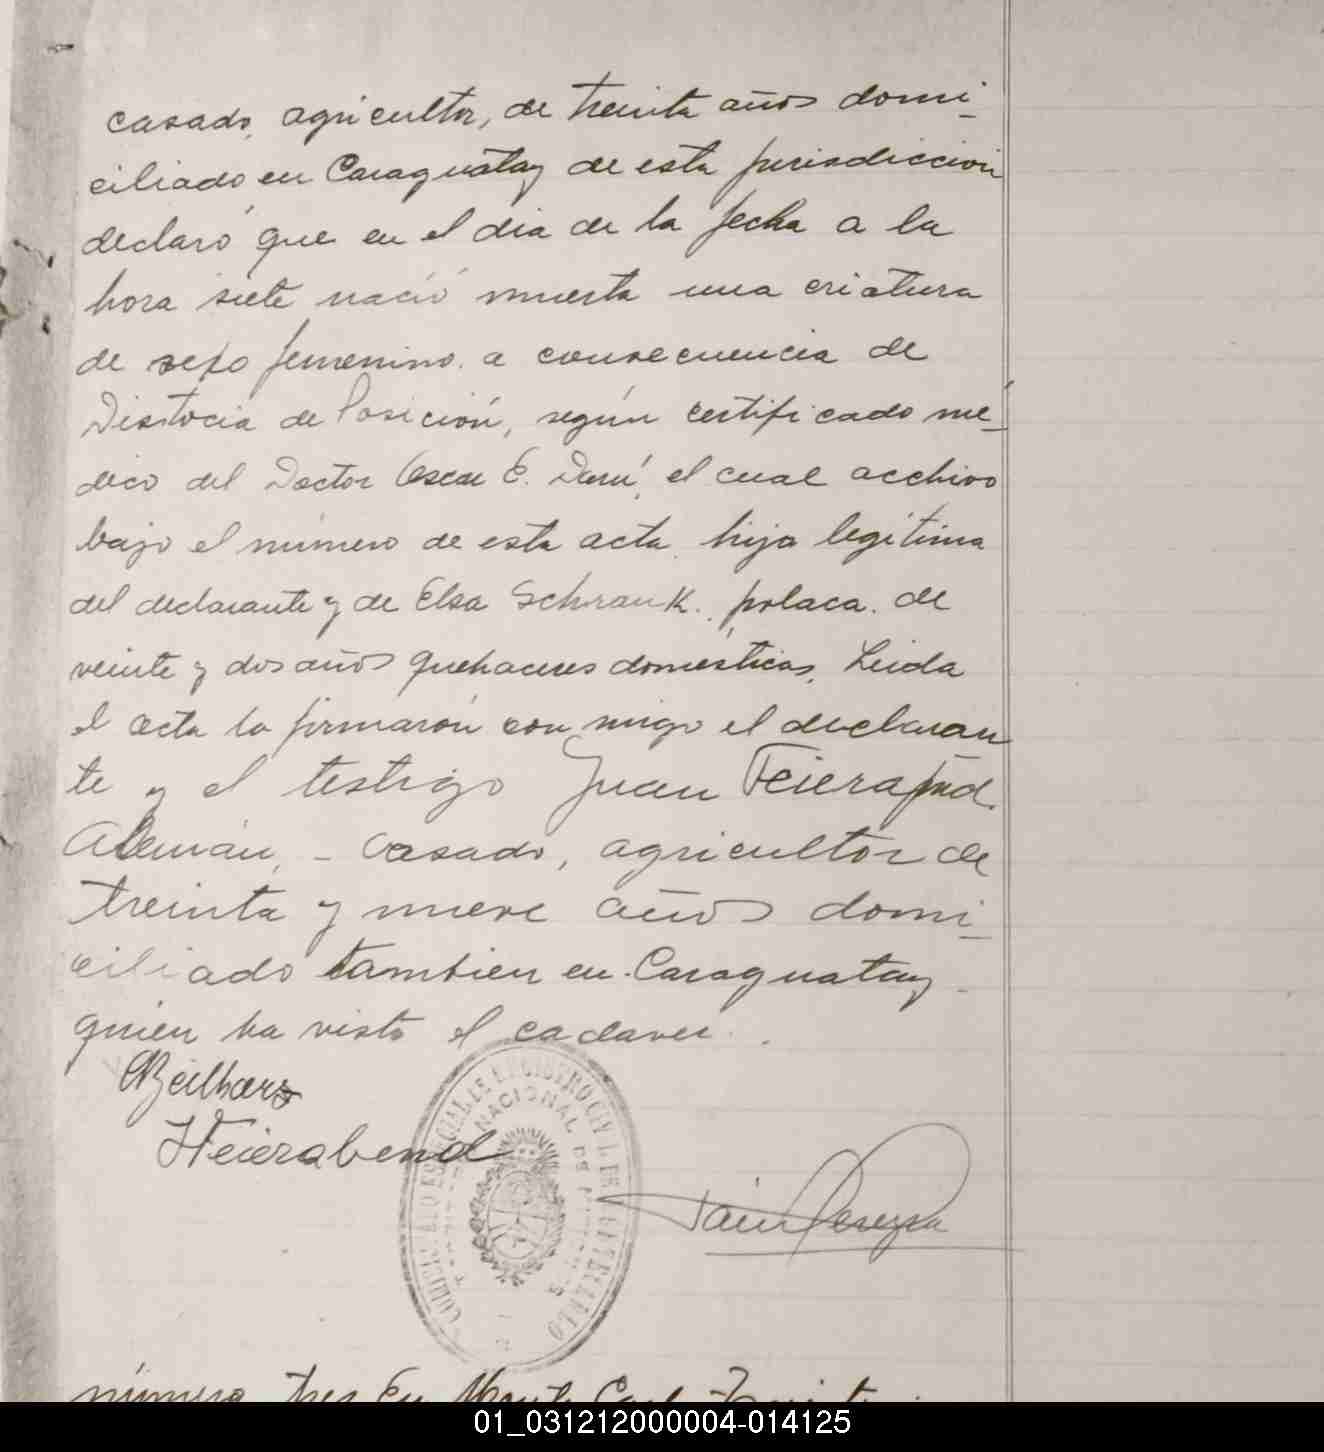 casado, agricultor, de treinta años domi-
ciliado en Caraguatay de esta jurisdicción
declaró que en el dia de la fecha a la
hora siete nació muerta una criatura
de sexo femenino. a consecuencia de
Distocia de Posición, según certificado mé-
dico del Doctor Oscar E. Darú, el cual archivo
bajo el número de esta acta. hija legítima
del declarante y de Elsa Schrank. polaca. de
veinte y dos años quehaceres domésticos. Leida
el acta la firmarón con migo el declaran
te y el testigo Juan Feierabend.
Alemán, - Casado, agricultor de
treinta y nueve años domi-
ciliado tambien en Caraguatay -
quién ha visto el cadaver.
Beilharz
JFeierabend
NACIONAL DE
Pereyra
número tres En Monte Carlo
01_031212000004-014125